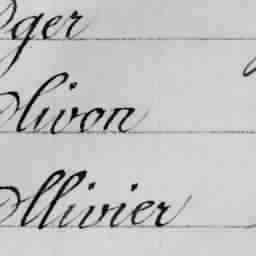 Oger
Olivon
Ollivier